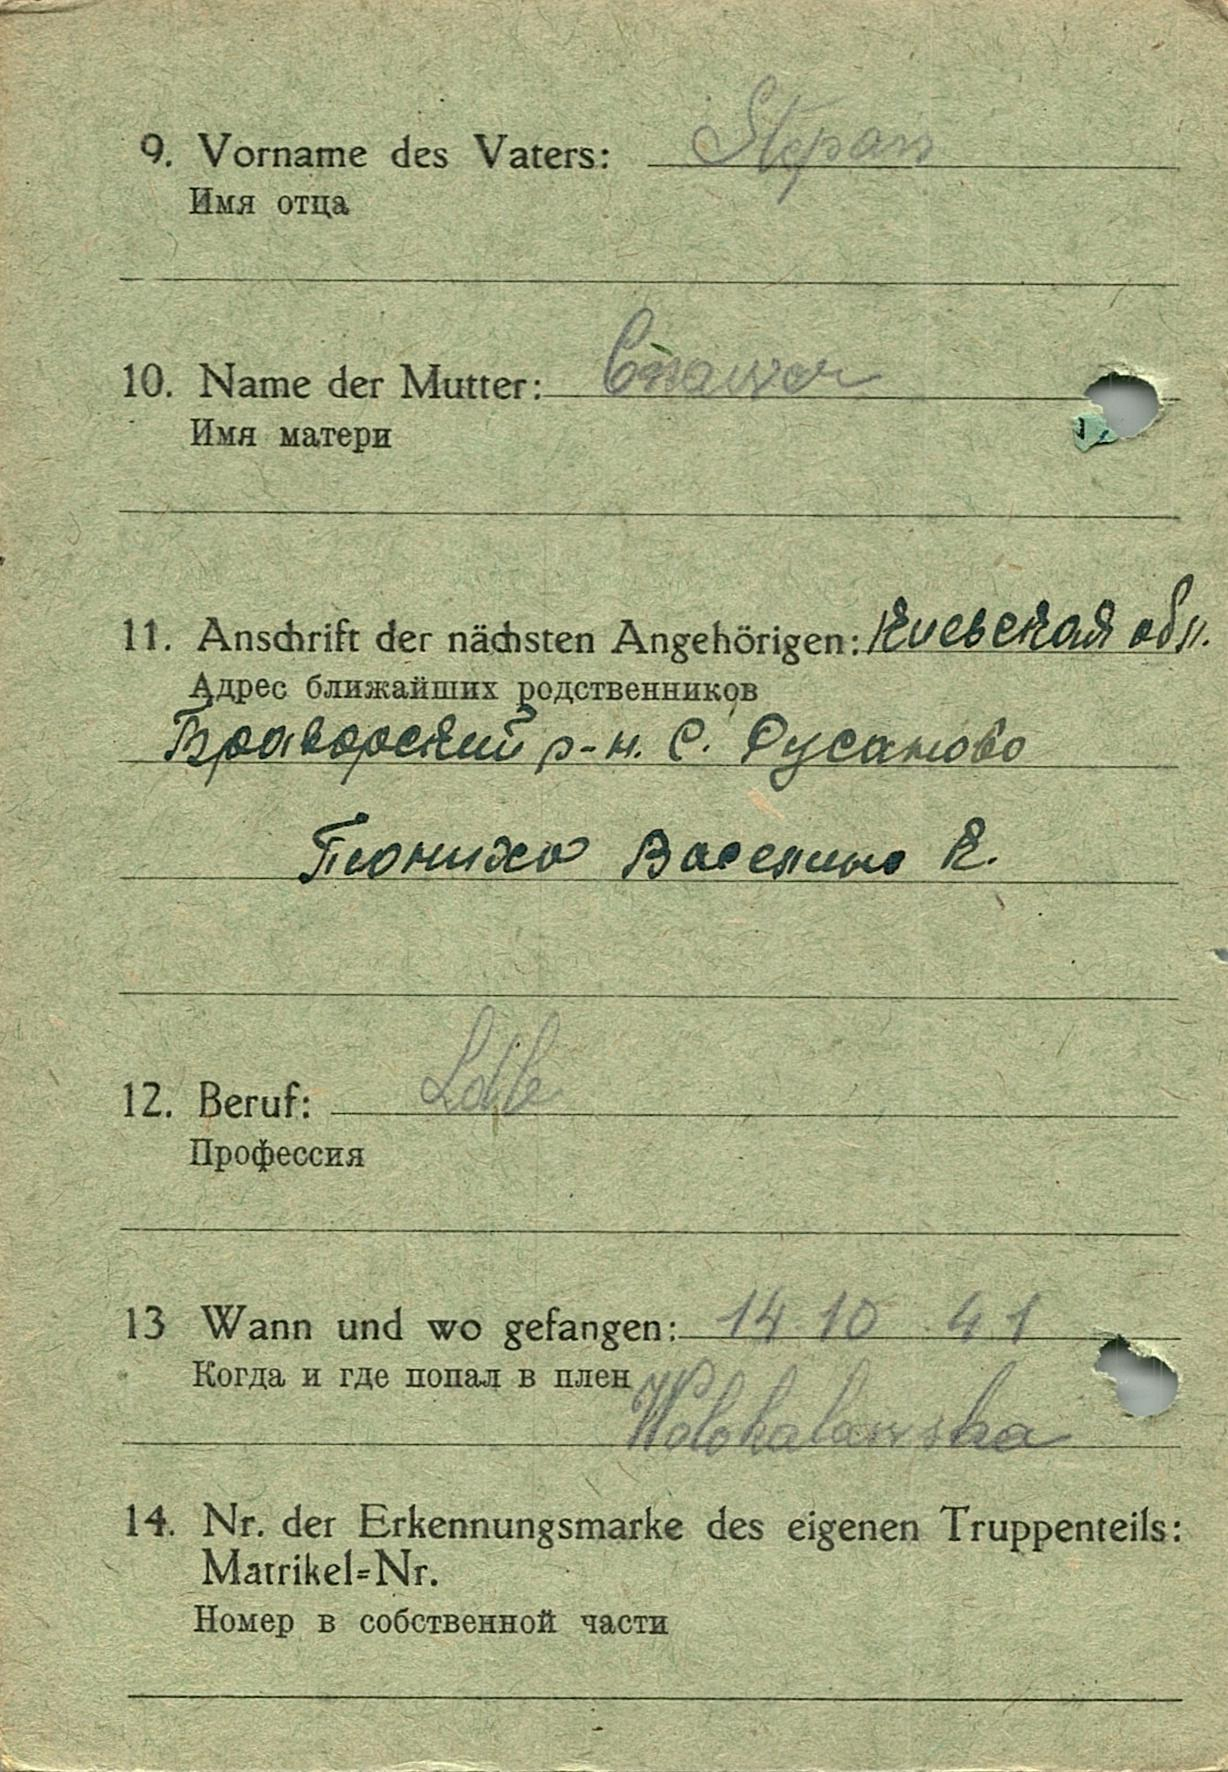 9. Vorname des Vaters: Stepan
Имя отца
10. Name der Mutter:
Имя матери
11. Anschrift der nächsten Angehörigen: Киевская обл.
Адрес ближайших родственников
р-н. С. Русаново
К.
12. Beruf:
Профессия
13 Wann und wo gefangen: 14. 10 41
Когда и где попал в плен
Wolokalawska
14. Nr. der Erkennungsmarke des eigenen Truppenteils:
Matrikel=Nr.
Номер в собственной части